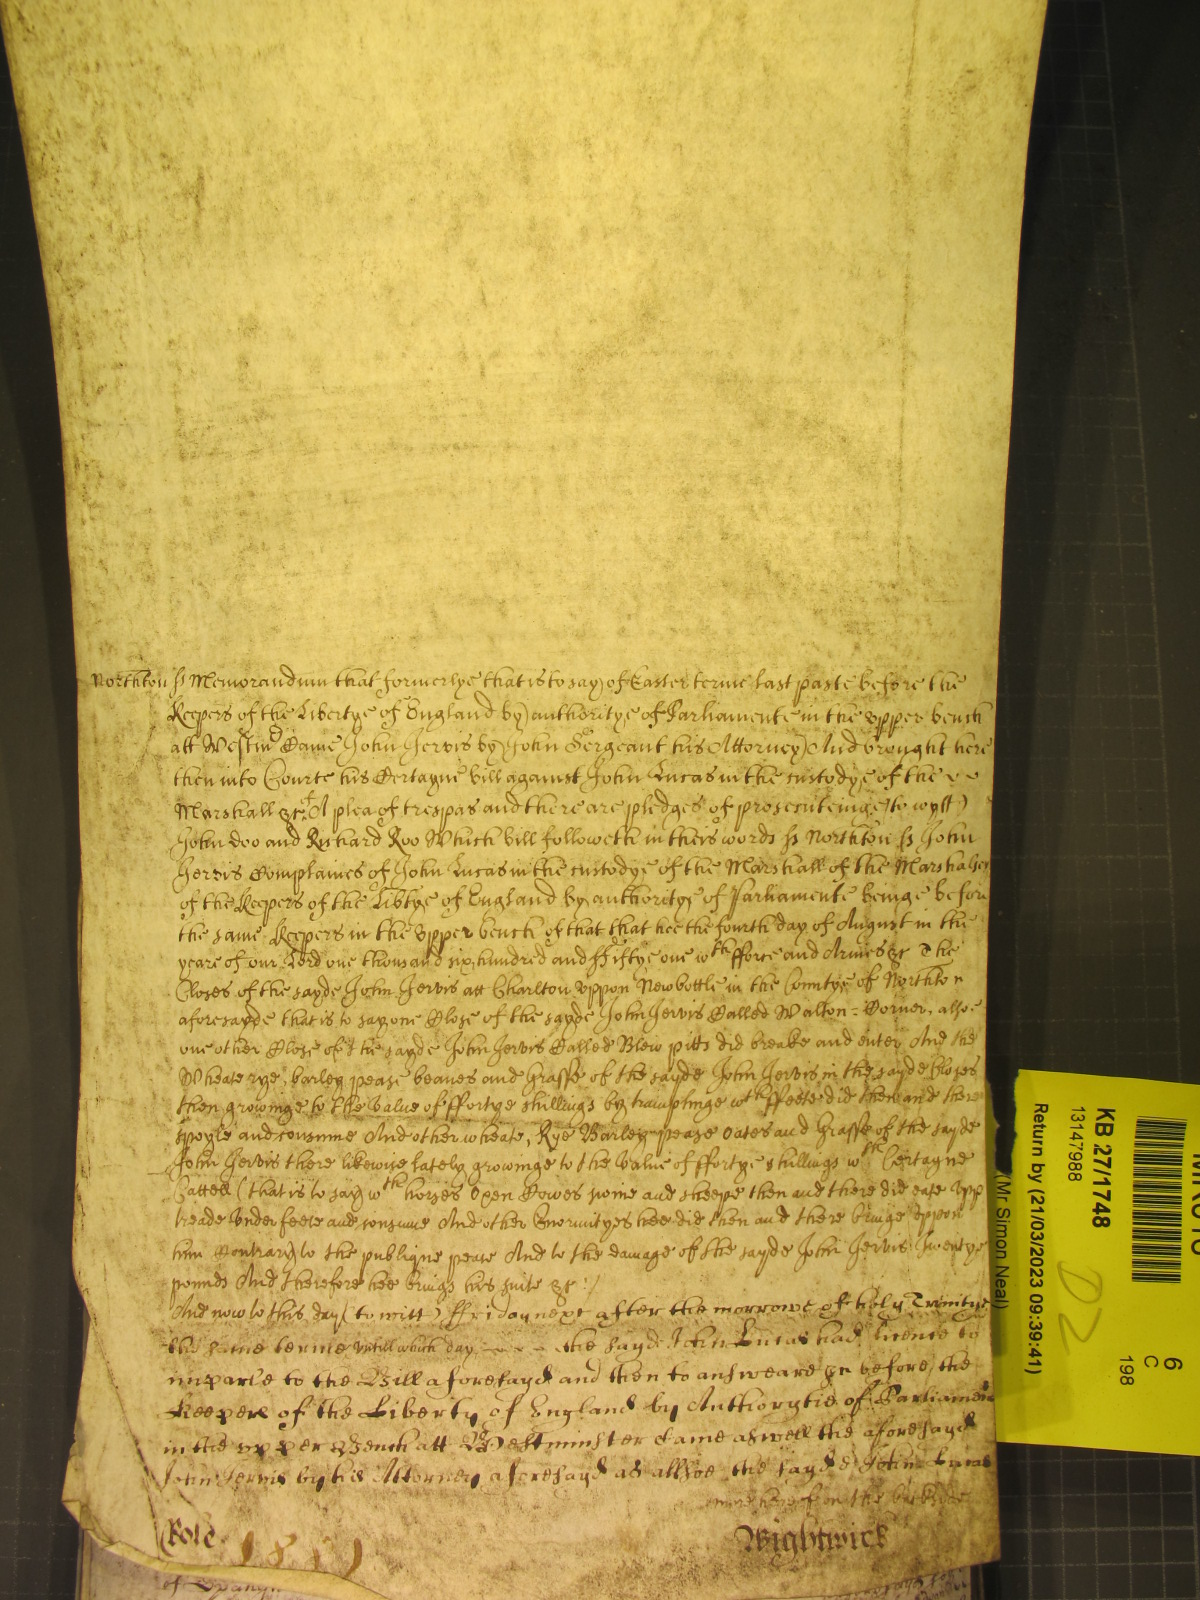 Northton ss Memorandum that formerlye that is to say of Easter terme last paste before the
Keepers of the Libertye of England by authoritye of Parliamente in the upper bench
att Westmr Came John Jervis by John Sergeant his Attorney And brought here
then into Courte his Certayne bill against John Lucas in the custodye of the
Marshall &c Of A plea of trespas and there are pledges of prosecuteinge (to wytt)
John doo and Richard Roo Which bill followeth in theis words ss Northton ss John
Jervis Complaines of John Lucas in the custodye of the Marshall of the Marshalsey
of the Keepers of the Libtye of England by authoritye of Parliamente beinge before
the same Keepers in the upper bench of that that hee the fourth day of August in the
yeare of our Lord one thousand six hundred and ffiftye one wth fforce and Armes &c The
Closes of the sayde John Jervis att Charlton uppon Newbottle in the Countye of Northton
aforesayde that is to say one Close of the sayde John Jervis Called Walton-Corner, alsoe
one other Close of the sayde John Jervis Called Blew pitts did breake and enter And the
Wheate rye, barley pease beanes and Grasse of the sayde John Jervis in the sayde Closes
then growinge to the value of ffortye shillings by tramplinge wth ffeete did then and there
spoyle and consume And other wheate, Rye Barley pease oates and Grasse of the sayde
John Jervis there likewise lately growinge to the value of ffortye shillings wth Certayne
Cattell (that is to say) wth horses Oxen Cowes swine and sheepe then and there did eate upp
treade under feete and consume And other Enormityes hee did then and there bringe uppon
him Contrary to the publique peace And to the damage of the sayde John Jervis Twentye
pounds And therefore hee brings his suite &c
And now to this day (to witt) ffriday next after the morrowe of holy Trinitye
the same terme untill which day the sayd John Lucas had licence to
imparle to the Bill aforesayd and then to answeare &c before the
Keepers of the Liberty of England by Authorytie of Parliament
in the upper Bench att Westminster Came aswell the aforesayd
John Jervis by his Attorney aforesayd as allsoe the sayde John Lucas
more hereof on the backside
Role
Wightwick
KB 27/1748
13147988
Return by (21/03/2023 09:39:41)
(Mr Simon Neal)
D2
6
C
198